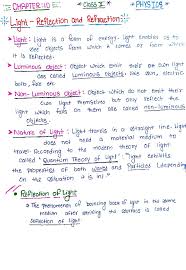 CHAPTER 10 Class X PHYSICS
Light - Reflection and Refraction
Light : Light is a form of energy. Light enables us to
see objects from which it comes or from which it
is reflected.
Luminous object : Object which emit their own light
are called Luminous objects like, sun, electric
bulb, etc.
Non-Luminous object : Object which do not emit their
own light themselves but only reflect the
light which falls on them, are called non-luminous
objects.
Nature of Light : Light travels in a straight line. Light
does not need a material medium to
travel. According to the modern theory of light
called "Quantum Theory of Light", light exhibits
the properties of both waves and Particles (depending
on the situation it is in)
Reflection of Light
The phenomenon of bouncing back of light in the same
medium after striking a surface is called
reflection of light.